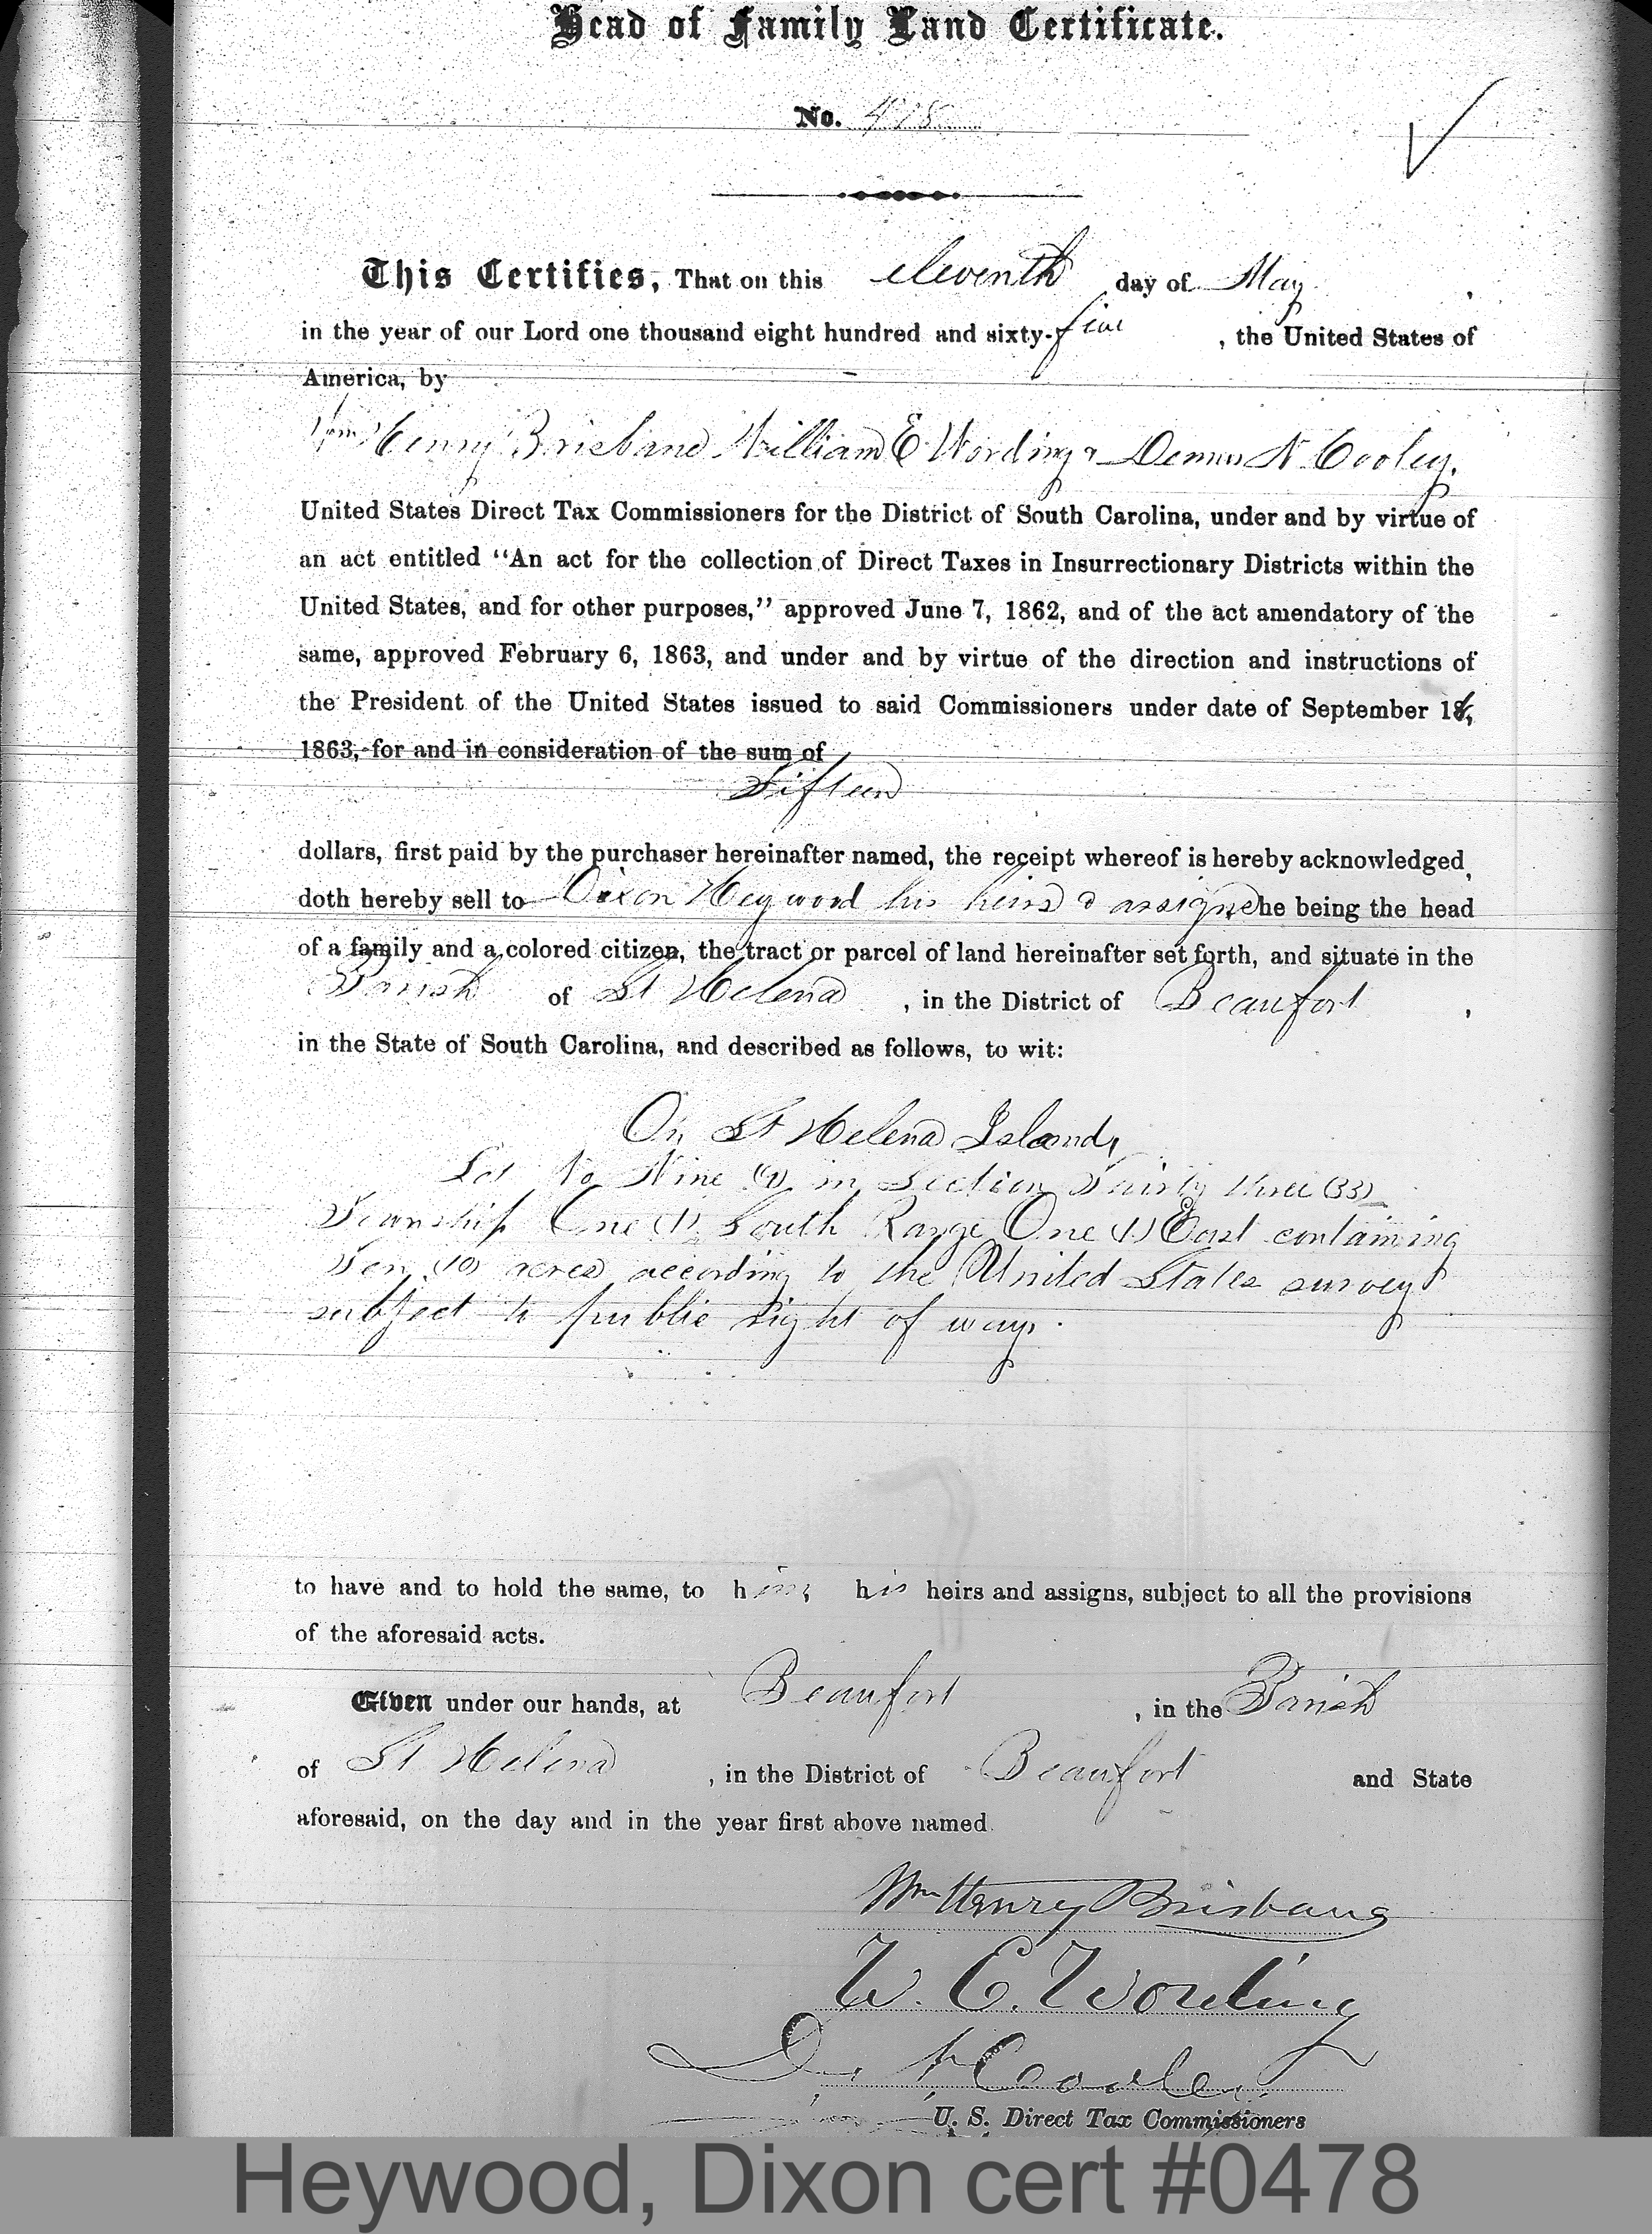 Head of Family Land Certificate.
No. 478
This Certifies, That on this eleventh day of May,
in the year of our Lord one thousand eight hundred and sixty-five, the United States of
America, by
Wm Henry Brisbane William E Wording & Dennis N Cooley.
United States Direct Tax Commissioners for the District of South Carolina, under and by virtue of
an act entitled "An act for the collection of Direct Taxes in Insurrectionary Districts within the
United States, and for other purposes," approved June 7, 1862, and of the act amendatory of the
same, approved February 6, 1863, and under and by virtue of the direction and instructions of
the President of the United States issued to said Commissioners under date of September 16,
1863, for and in consideration of the sum of
Fifteen
dollars, first paid by the purchaser hereinafter named, the receipt whereof is hereby acknowledged,
doth hereby sell to Dixon Heywood his heirs & assigns he being the head
of a family and a colored citizen, the tract or parcel of land hereinafter set forth, and situate in the
Parish of St Helena, in the District of Beaufort,
in the State of South Carolina, and described as follows, to wit:
On St Helena Island,
Lot No Nine (9) in Section Thirty three (33)
Township One (1) South Range One (1) East containing
Ten (10) acres according to the United States survey
subject to public right of way.
to have and to hold the same, to him, his heirs and assigns, subject to all the provisions
of the aforesaid acts.
Given under our hands, at Beaufort, in the Parish
of St Helena, in the District of Beaufort and State
aforesaid, on the day and in the year first above named.
Wm Henry Brisbane
W. E. Wording
D. N. Cooley
U. S. Direct Tax Commissioners
Heywood, Dixon cert #0478